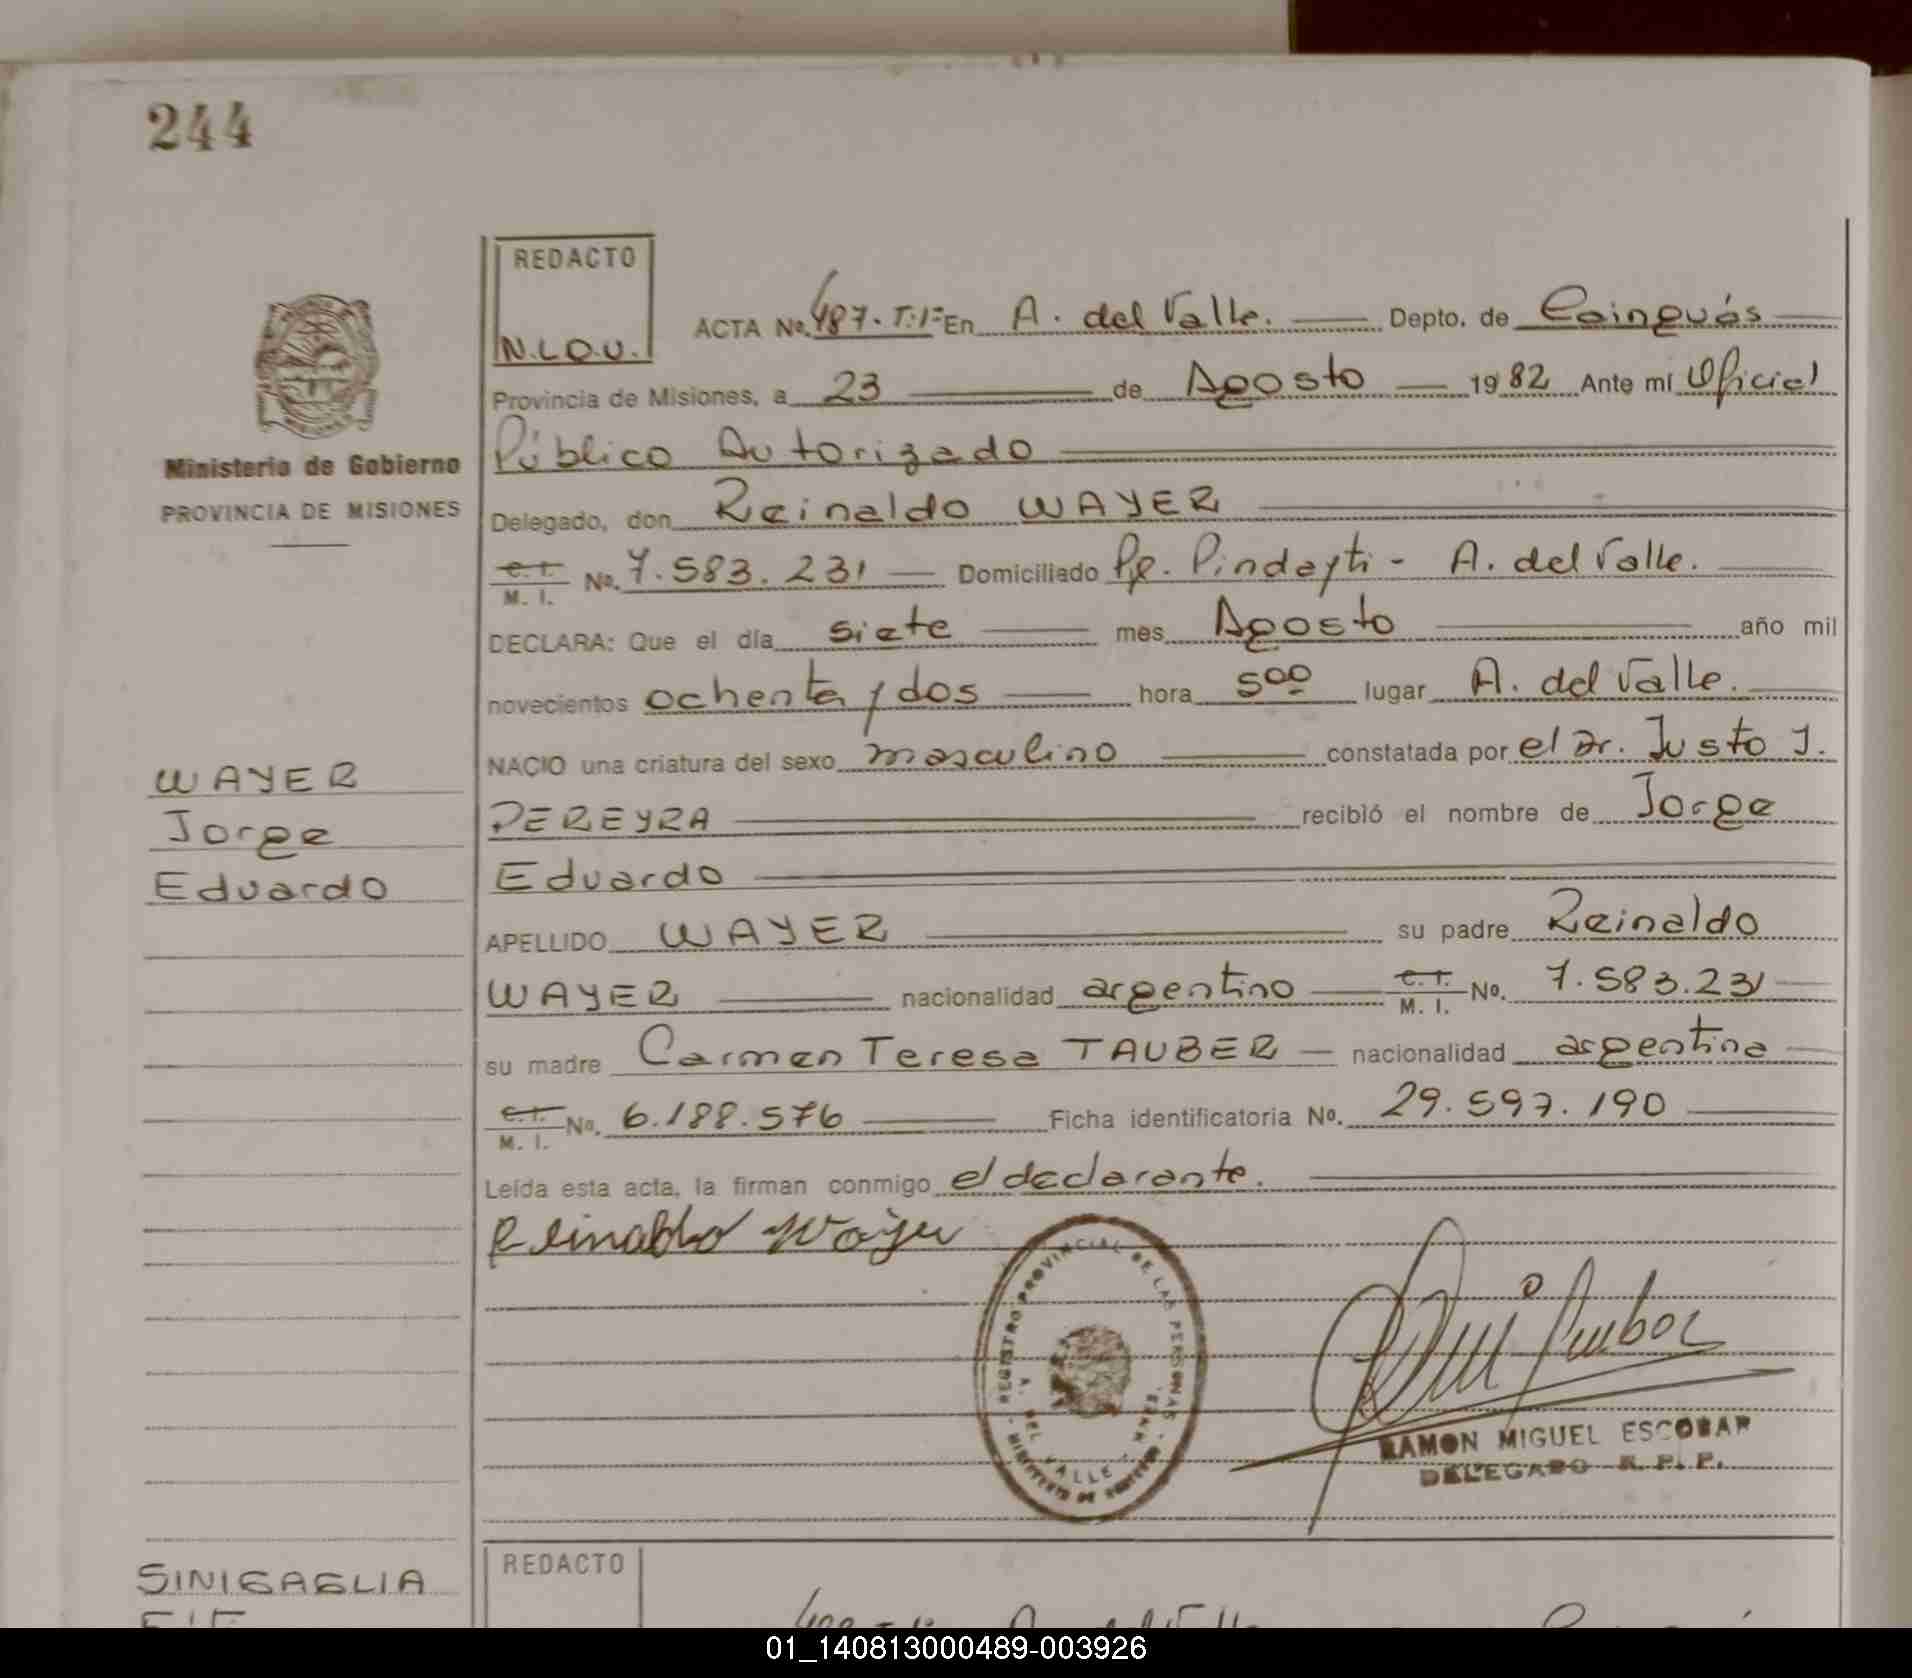 244
REDACTO
N.L.O.U.
ACTA No. 487. T:1º En A. del Valle. Depto. de Cainguás
Provincia de Misiones, a 23 de Agosto 1982 Ante mí Oficial
Público Autorizado
Ministerio de Gobierno
PROVINCIA DE MISIONES
Delegado, don Reinaldo WAYER
C. I. M. I. No. 7.583.231 Domiciliado Pje. Pindayti - A. del Valle.
DECLARA: Que el día siete mes Agosto año mil
novecientos ochenta y dos hora 500 lugar A. del Valle.
NACIO una criatura del sexo masculino constatada por el Dr. Justo J.
PEREYRA recibió el nombre de Jorge
Eduardo
WAYER
Jorge
Eduardo
APELLIDO WAYER su padre Reinaldo
WAYER nacionalidad argentino C. I. M. I. No. 7.583.231
su madre Carmen Teresa TAUBER nacionalidad argentina
C. I. M. I. No. 6.188.576 Ficha identificatoria No. 29.597.190
Leída esta acta, la firman conmigo el declarante.
Reinaldo Wayer
REGISTRO PROVINCIAL DE LAS PERSONAS
A. DEL VALLE
RAMON MIGUEL ESCOBAR
DELEGADO R. P. P.
SINIGAGLIA
REDACTO
01_140813000489-003926